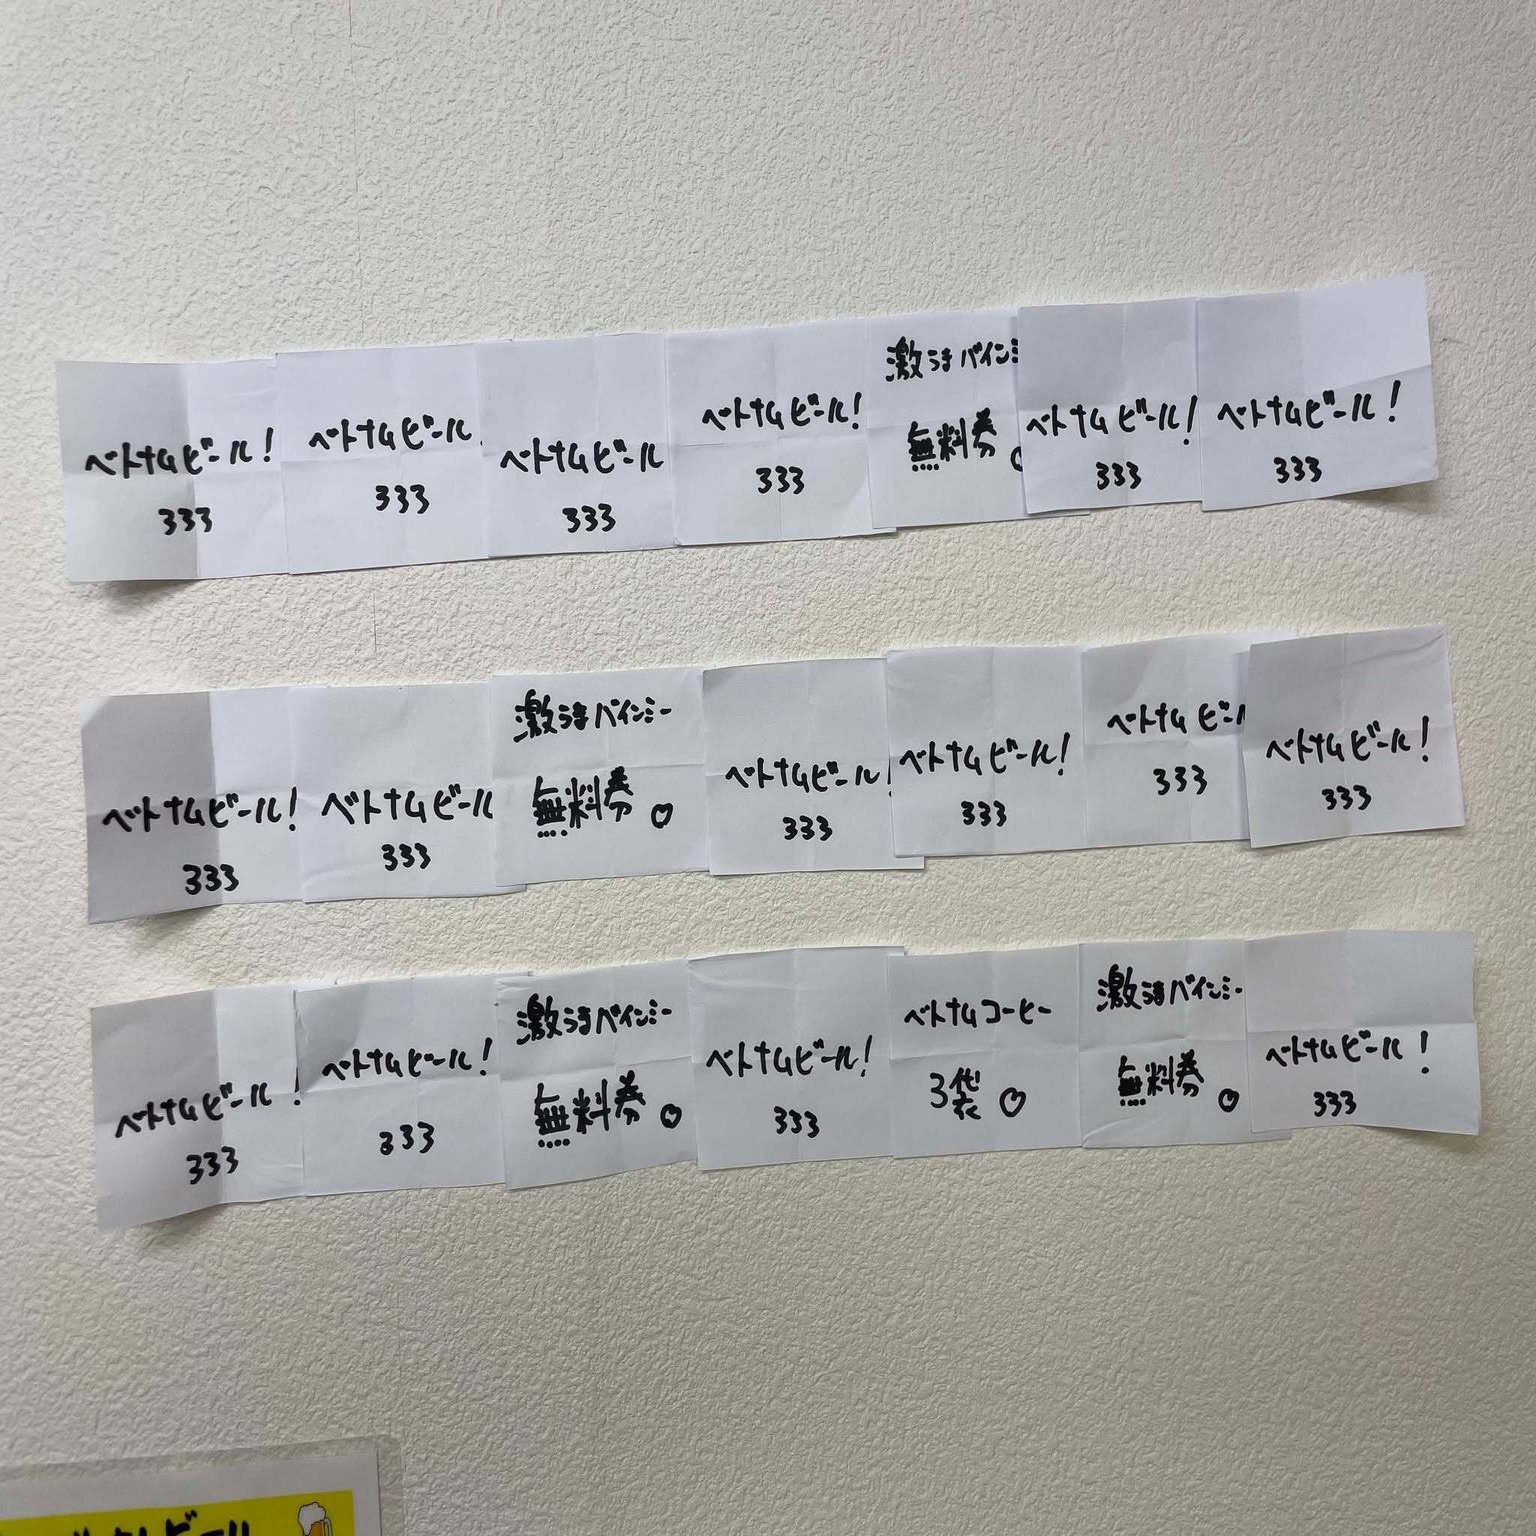 ベトナムビール!
333
ベトナムビール
333
ベトナムビール
333
ベトナムビール!
333
激うまバインミ
無料券
ベトナムビール!
333
ベトナムビール!
333
ベトナムビール!
333
ベトナムビール
333
激うまバインミー
無料券♡
ベトナムビール!
333
ベトナムビール!
333
ベトナムビー
333
ベトナムビール!
333
ベトナムビール!
333
ベトナムビール!
333
激うまバインミー
無料券♡
ベトナムビール!
333
ベトナムコーヒー
3袋♡
激うまバインミー
無料券♡
ベトナムビール!
333
ビール